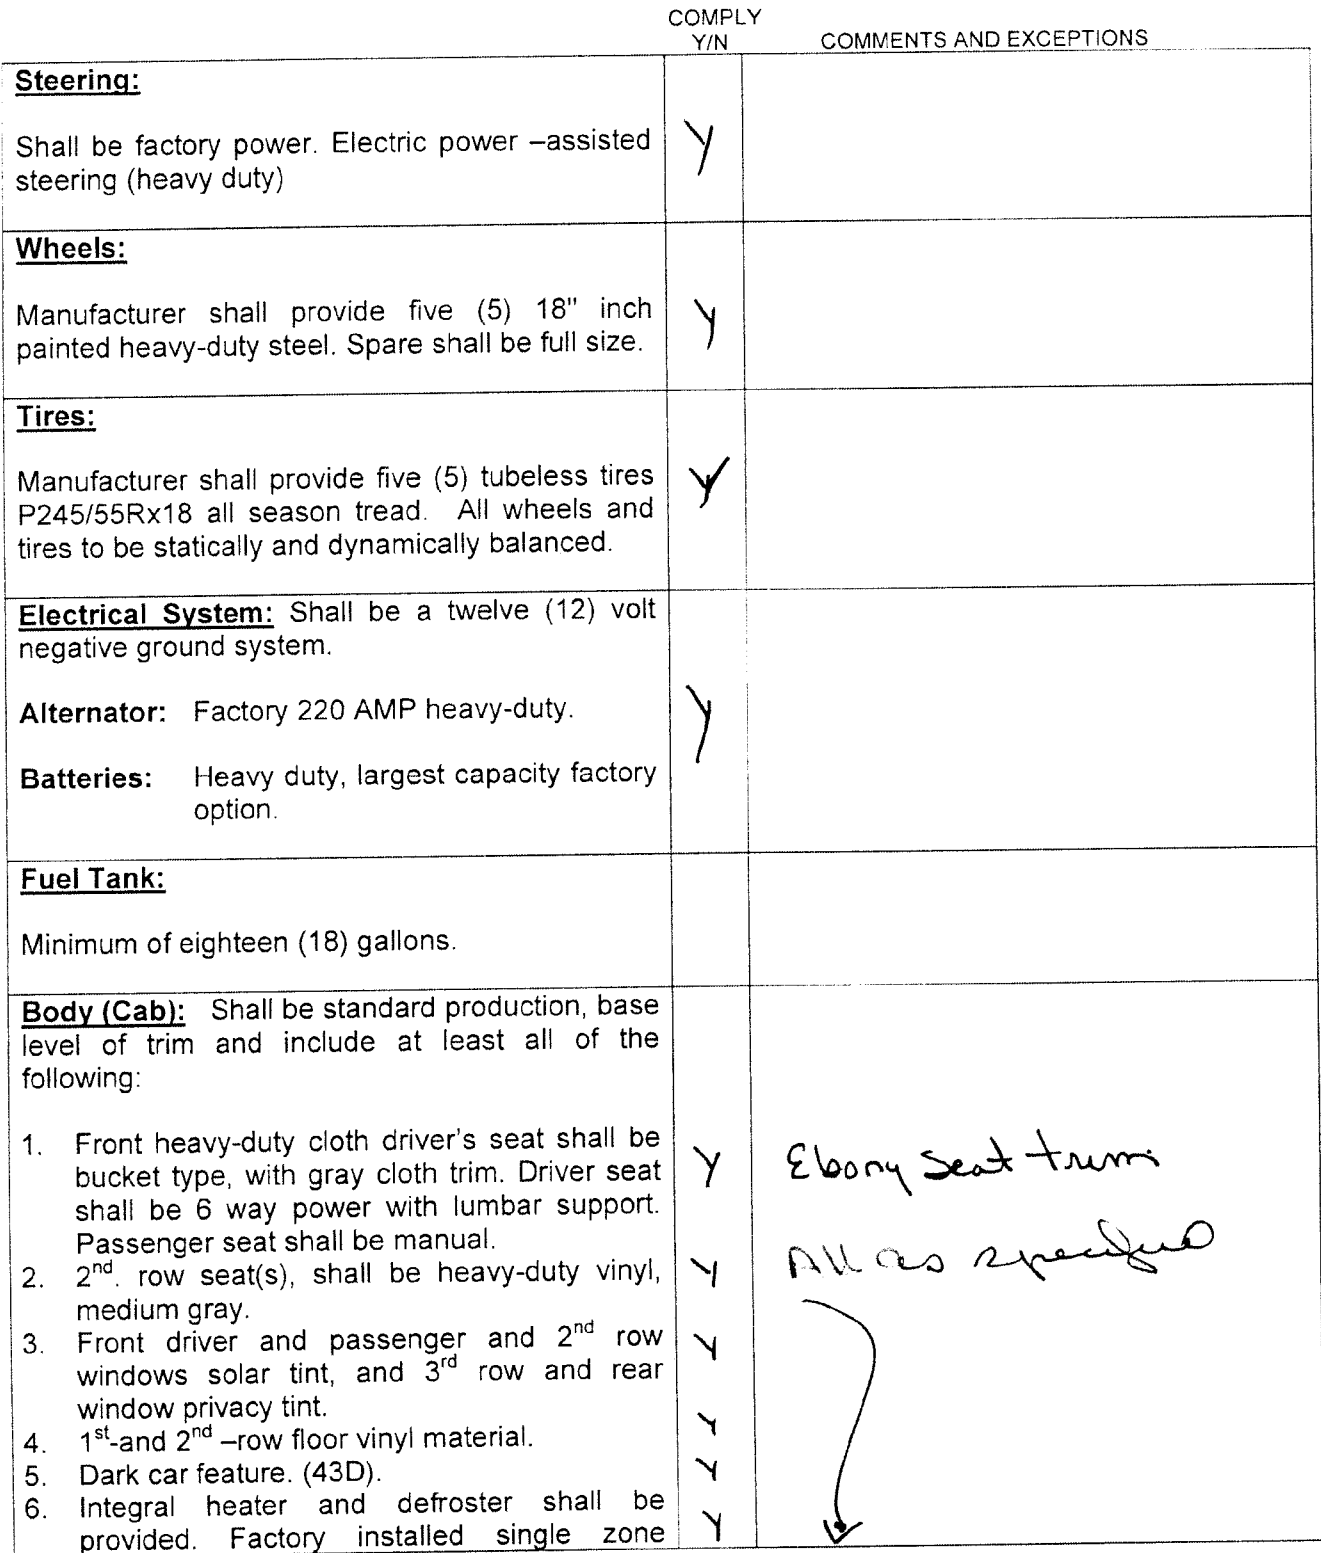 COMPLY
Y/N COMMENTS AND EXCEPTIONS
Steering:
Shall be factory power. Electric power –assisted
steering (heavy duty)
Y
Wheels:
Manufacturer shall provide five (5) 18" inch
painted heavy-duty steel. Spare shall be full size.
Y
Tires:
Manufacturer shall provide five (5) tubeless tires
P245/55Rx18 all season tread. All wheels and
tires to be statically and dynamically balanced.
Y
Electrical System: Shall be a twelve (12) volt
negative ground system.
Alternator: Factory 220 AMP heavy-duty.
Y
Batteries: Heavy duty, largest capacity factory
option.
Fuel Tank:
Minimum of eighteen (18) gallons.
Body (Cab): Shall be standard production, base
level of trim and include at least all of the
following:
1. Front heavy-duty cloth driver's seat shall be
bucket type, with gray cloth trim. Driver seat
shall be 6 way power with lumbar support.
Passenger seat shall be manual.
Y Ebony Seat trim
2. 2nd. row seat(s), shall be heavy-duty vinyl,
medium gray.
Y All as specified
3. Front driver and passenger and 2nd row
windows solar tint, and 3rd row and rear
window privacy tint.
Y
4. 1st-and 2nd –row floor vinyl material.
Y
5. Dark car feature. (43D).
Y
6. Integral heater and defroster shall be
provided. Factory installed single zone
Y